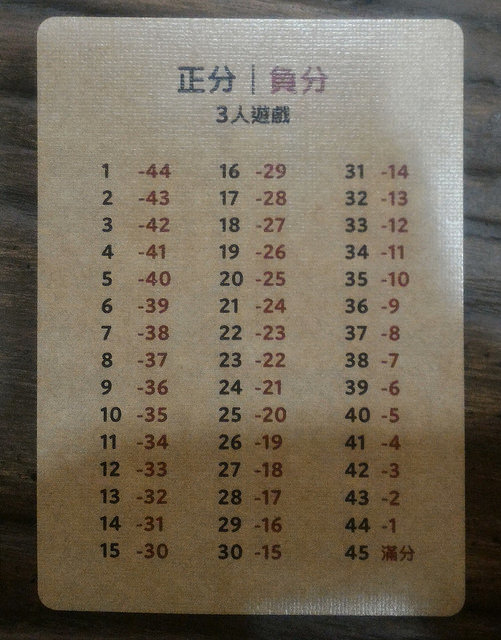 正分｜負分
3人遊戲
1 -44 16 -29 31 -14
2 -43 17 -28 32 -13
3 -42 18 -27 33 -12
4 -41 19 -26 34 -11
5 -40 20 -25 35 -10
6 -39 21 -24 36 -9
7 -38 22 -23 37 -8
8 -37 23 -22 38 -7
9 -36 24 -21 39 -6
10 -35 25 -20 40 -5
11 -34 26 -19 41 -4
12 -33 27 -18 42 -3
13 -32 28 -17 43 -2
14 -31 29 -16 44 -1
15 -30 30 -15 45 滿分